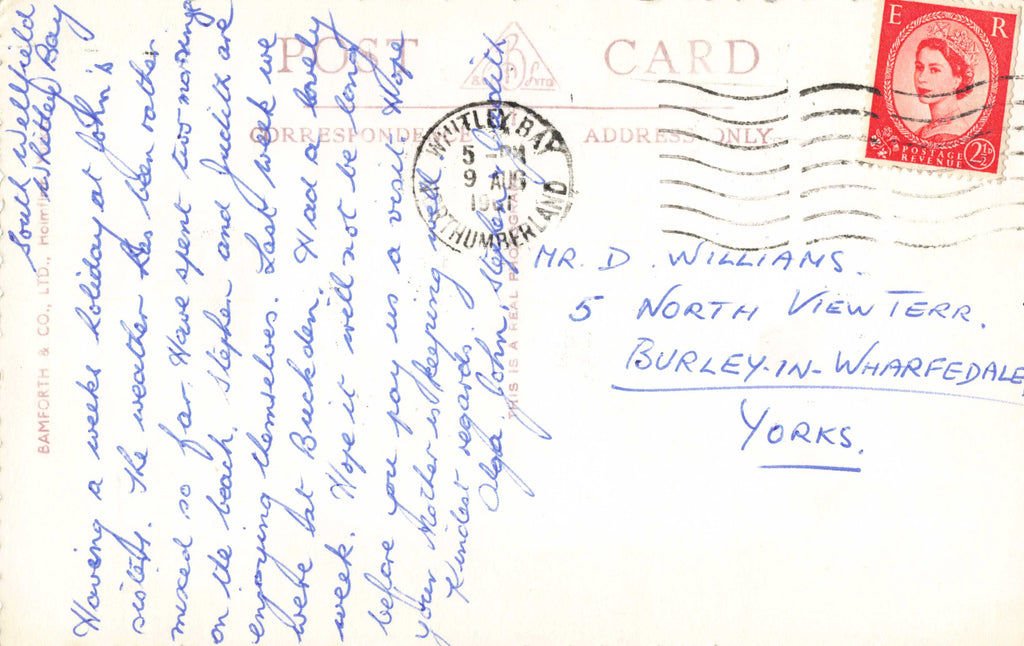 South Wellfield
Whitley Bay
Having a weeks holiday at John's
sisters. The weather has been rather
mixed so far. Have spent two mornings
on the beach. Stephen and Judith are
enjoying themselves. Last week we
were at Buckden. Had a lovely
week. Hope it will not be long
before you pay us a visit. Hope
your Mother is keeping well.
Kindest regards.
Olga, John, Stephen & Judith
POST CARD
CORRESPONDENCE ADDRESS ONLY
BAMFORTH & CO., LTD.,
THIS IS A REAL
WHITLEY BAY
5 - PM
9 AUG
NORTHUMBERLAND
E R
POSTAGE
REVENUE
2½D
MR. D. WILLIAMS.
5 NORTH VIEW TERR.
BURLEY-IN-WHARFEDALE,
YORKS.